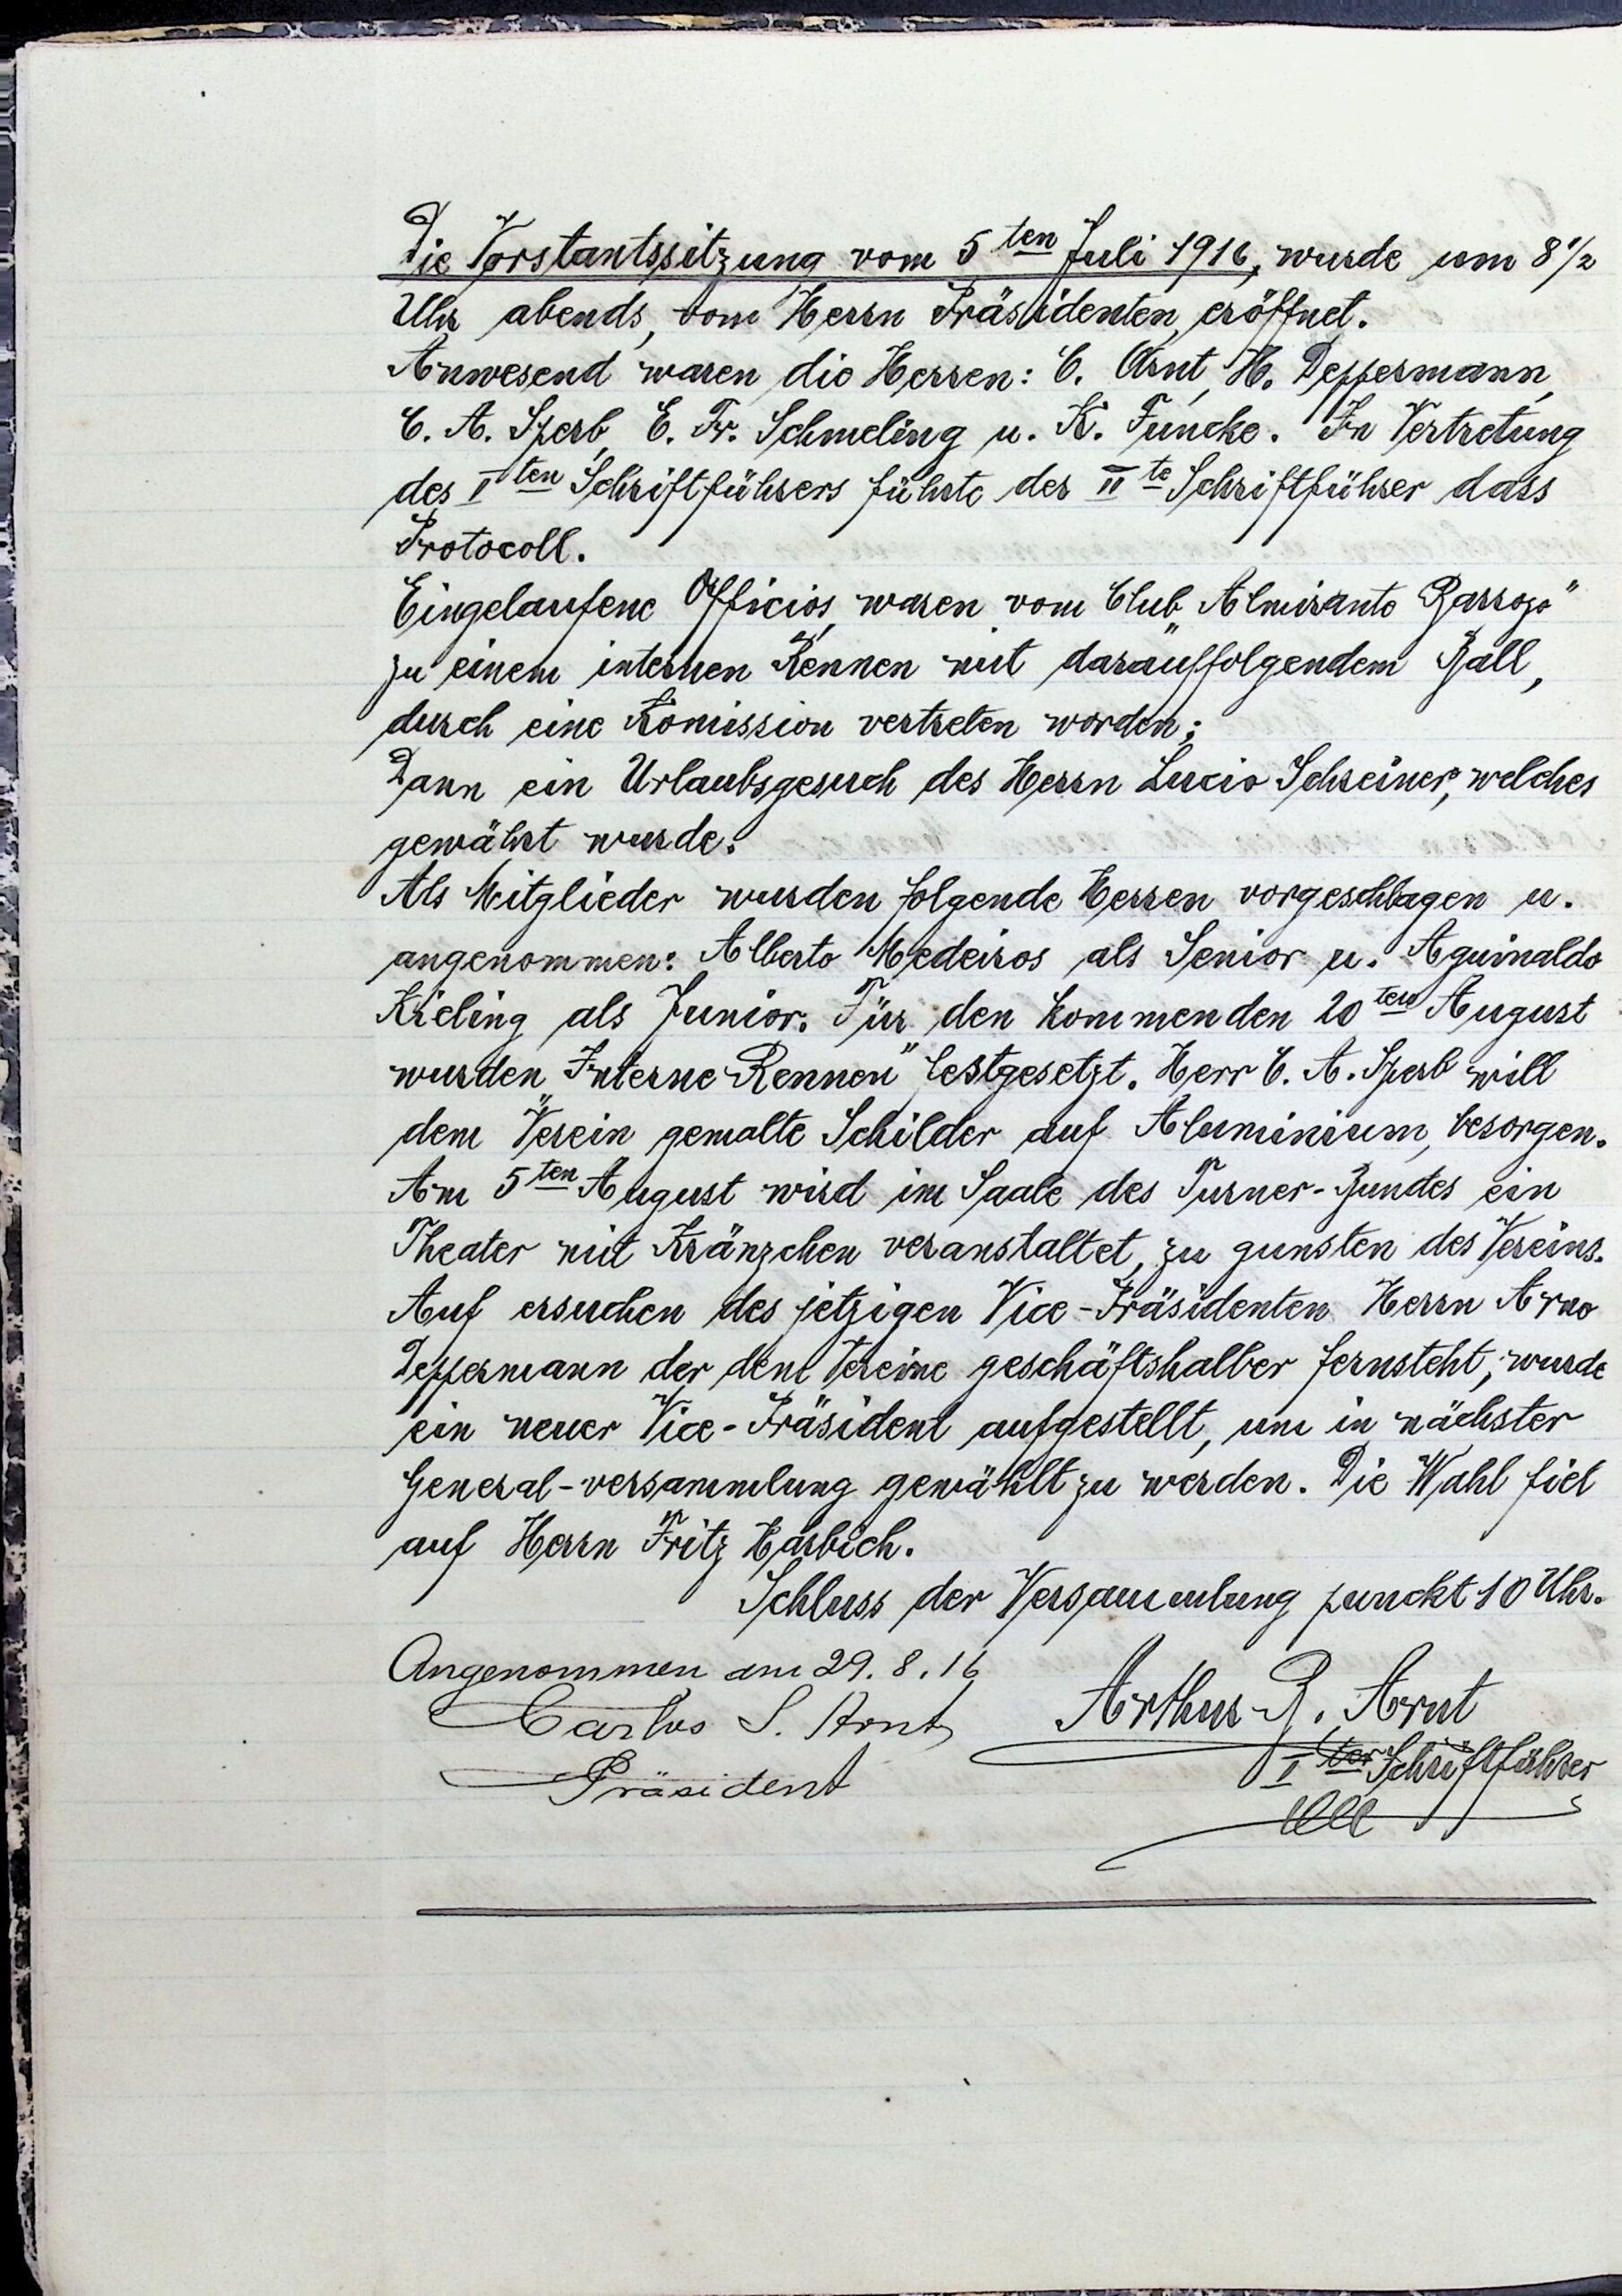 Die Vorstantssitzung vom 5ten Juli 1916, wurde um 8 1/2
Uhr abends, vom Herrn Präsidenten, eröffnet.
Anwesend waren die Herren: C. Arnt, H. Deppermann,
C. A. Sperb, E. Fr. Schmeling u. K. Funcke. In Vertretung
des Iten Schriftführers führte der IIte Schriftführer dass
Protocoll.
Eingelaufene Officios, waren vom Club „Almirante Barrozo"
zu einem internen Rennen mit darauffolgendem Ball,
durch eine Komission vertreten worden;
Dann ein Urlaubsgesuch des Herrn Lucio Schreiner, welches
gewährt wurde.
Als Mitglieder wurden folgende Herren vorgeschlagen u.
angenommen: Alberto Medeiros als Senior u. Aguinaldo
Krieling als Junior. Für den kommenden 20ten August
wurden „Interne Rennen" festgesetzt. Herr C. A. Sperb will
dem Verein gemalte Schilder auf Aluminium, besorgen.
Am 5ten August wird im Saale des Turner-Bundes ein
Theater mit Kränzchen veranstaltet, zu gunsten des Vereins.
Auf ersuchen des jetzigen Vice-Präsidenten Herrn Arno
Deppermann der dem Vereine geschäftshalber fernsteht, wurde
ein neuer Vice-Präsident aufgestellt, um in nächster
General-versammlung gewählt zu werden. Die Wahl fiel
auf Herrn Fritz Harbich.
Schluss der Versammlung punckt 10 Uhr.
Angenommen am 29.8.16
Carlos S. Arnt
Arthur B. Arnt
Präsident
Iter Schriftführer